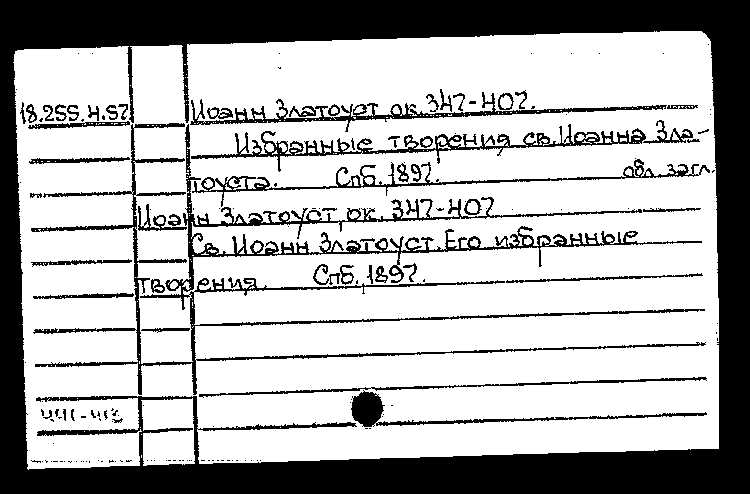 18.255.4.57 Иоанн Златоуст, ок. 347-407.
Избранные творения св. Иоанна Зла-
тоуста. Спб., 1897. обл. загл.
Иоанн Златоуст, ок. 347-407
Св. Иоанн Златоуст. Его избранные
творения. Спб., 1897.